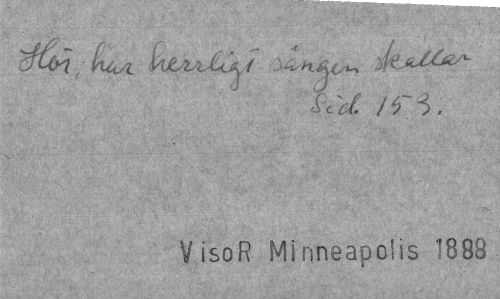 Hör, hur herrligt sången skallar
Sid. 153.
VisoR Minneapolis 1888